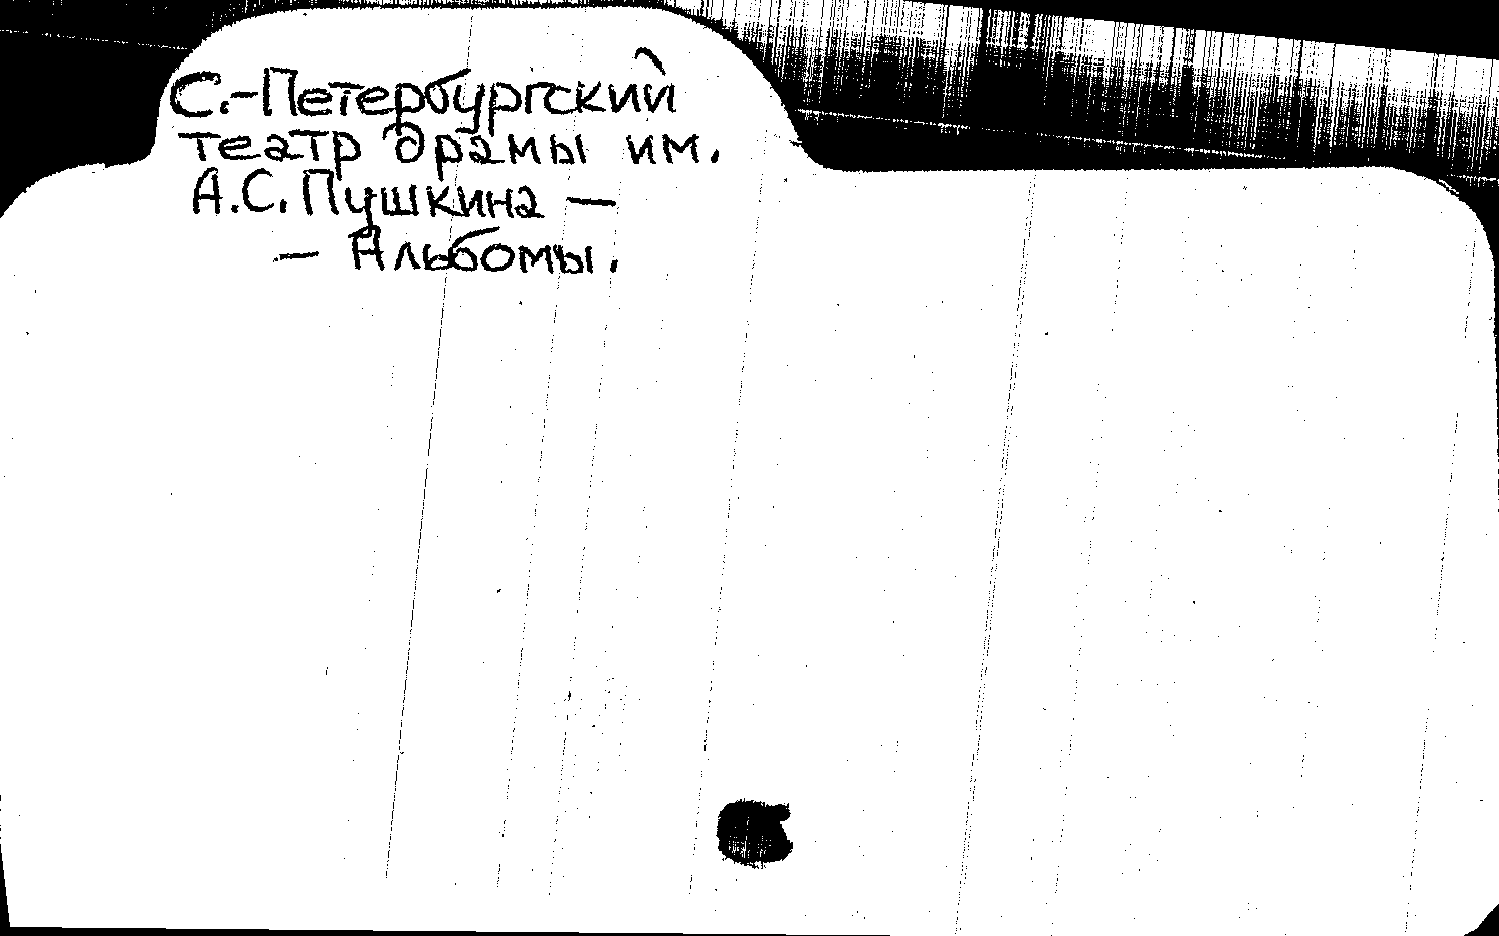 С.-Петербургский
театр драмы им.
А.С. Пушкина —
— Альбомы.